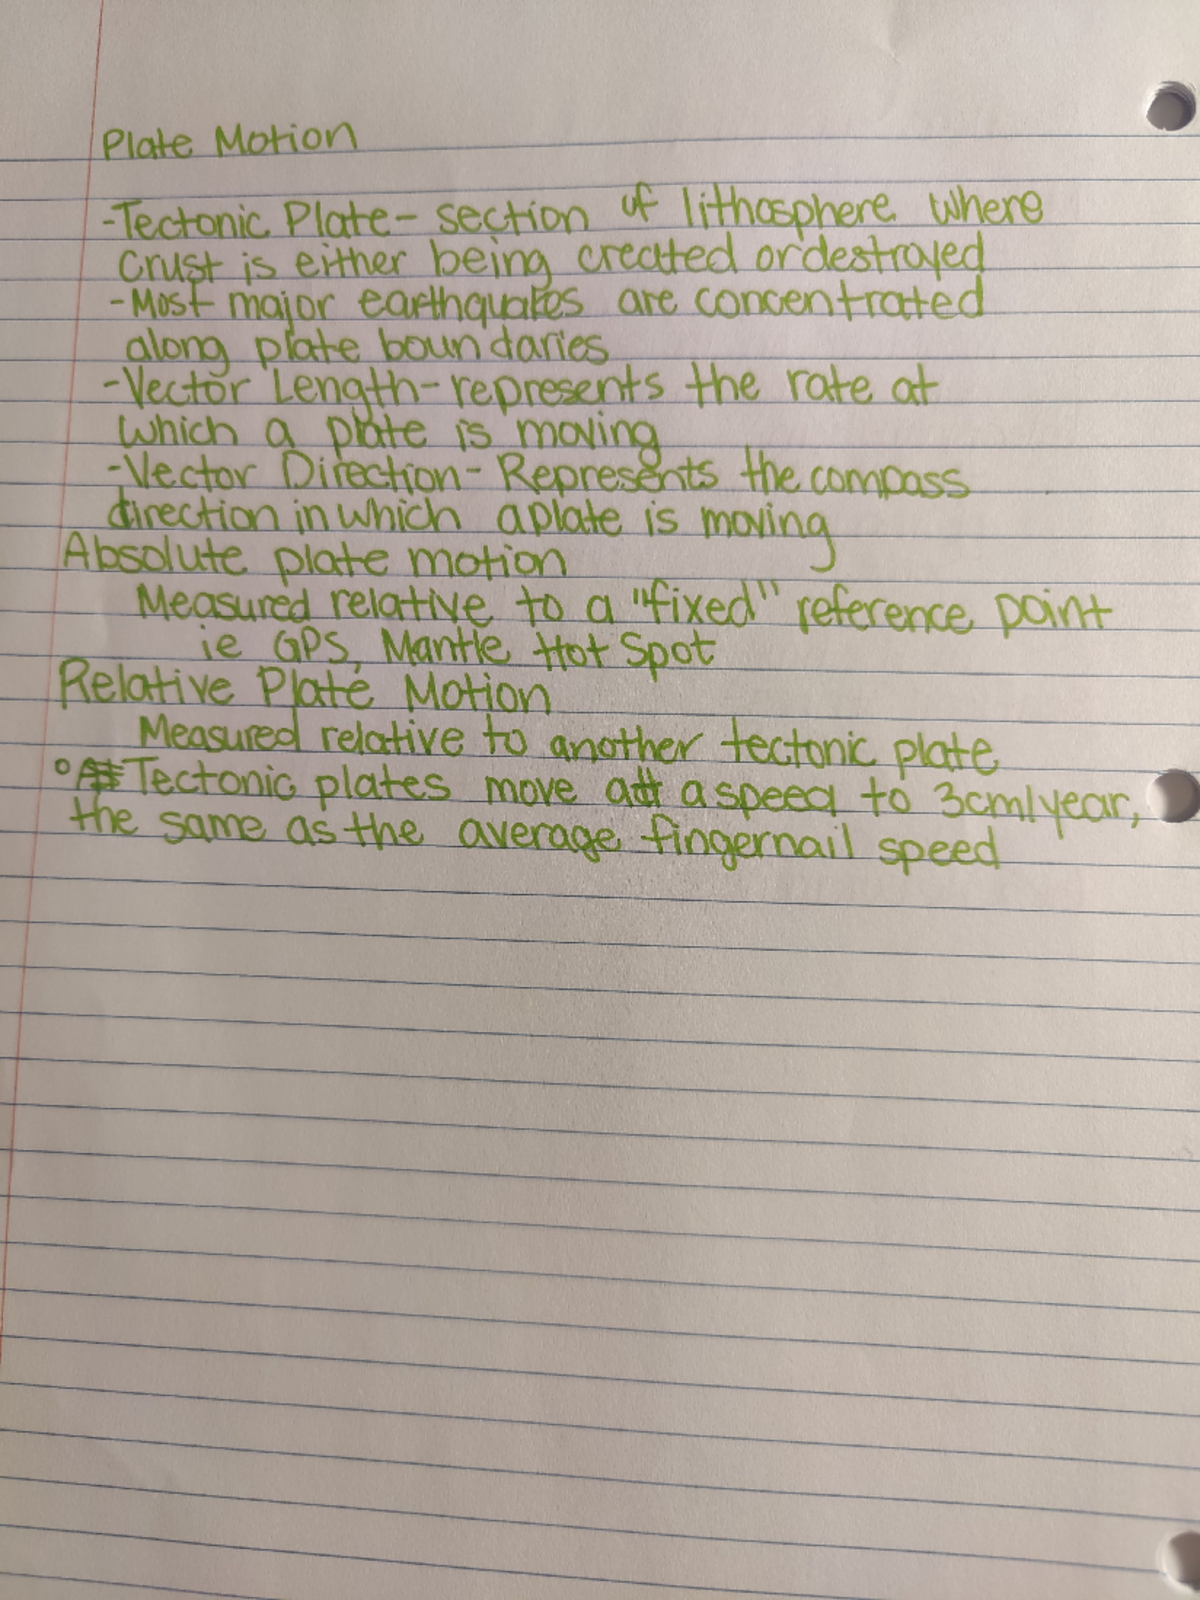 Plate Motion
-Tectonic Plate- section of lithosphere where
crust is either being created or destroyed
-Most major earthquakes are concentrated
along plate boundaries
-Vector Length-represents the rate at
which a plate is moving
-Vector Direction- Represents the compass
direction in which a plate is moving
Absolute plate motion
Measured relative to a "fixed" reference point
ie GPS, Mantle Hot Spot
Relative Plate Motion
Measured relative to another tectonic plate
° Tectonic plates move at a speed to 3cm/year,
the same as the average fingernail speed